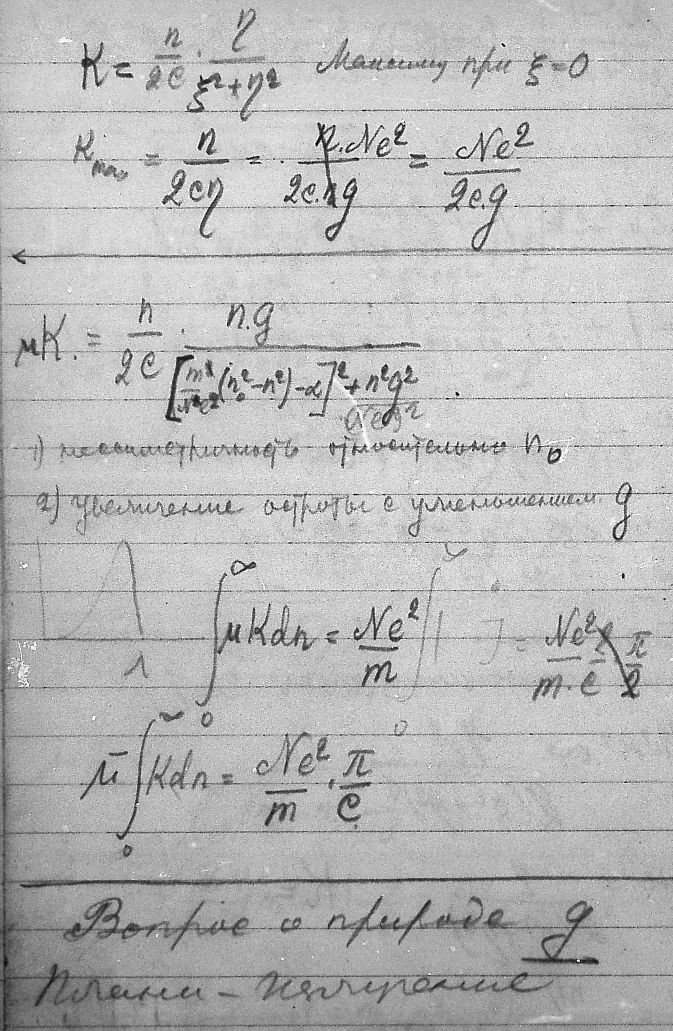 K = n/2c · η/(ξ²+η²) Максимум при ξ=0
Kmax = n/2cη = n·Ne²/2c·ng = Ne²/2c·g
μK = n/2c · n·g/([m/Ne² (n₀²-n²)-α]² + n²g²/(Ne²)²)
1) нессиметричность относительно n₀
2) увеличение остроты с уменьшением g
λ
∫₀^∞ μKdn = Ne²/m ∫₀^∞ = Ne²/m·c π/2
μ̄ ∫₀^∞ Kdn = Ne²/m · π/c
Вопрос о природе g
Планк – излучение